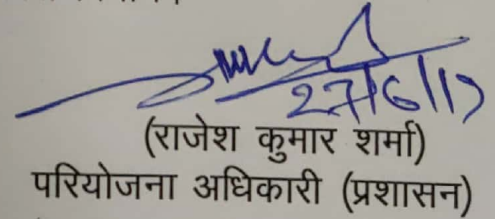 27/6/17
(राजेश कुमार शर्मा)
परियोजना अधिकारी (प्रशासन)